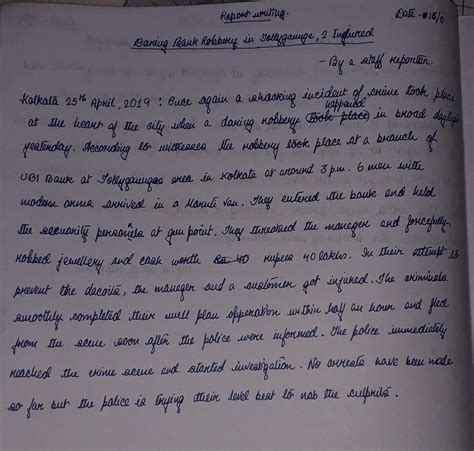 Report writing.
Date - 15/0
Daring Bank Robbery in Tollygaunge, 2 Injured
- By a staff reporter.
Kolkata 25th April, 2019 : Once again a shocking incident of crime took place
at the heart of the city when a daring robbery took place happened in broad daylight
yesterday. According to witnesses the robbery took place at a branch of
UBI Bank at Tollygaunge area in Kolkata at around 3 pm. 6 men with
modern arms arrived in a Maruti Van. They entered the bank and held
the security personnels at gun point. They threatened the manager and forcefully
robbed jewellery and cash worth rupees 40 lakhs. In their attempt to
prevent the dacoits, the manager and a customer got injured. The criminals
smoothly completed their well plan opperation within half an hour and fled
from the scene soon after the police were informed. The police immediately
reached the crime scene and started investigation. No arrests have been made
so far but the police is trying their level best to nab the culprits.